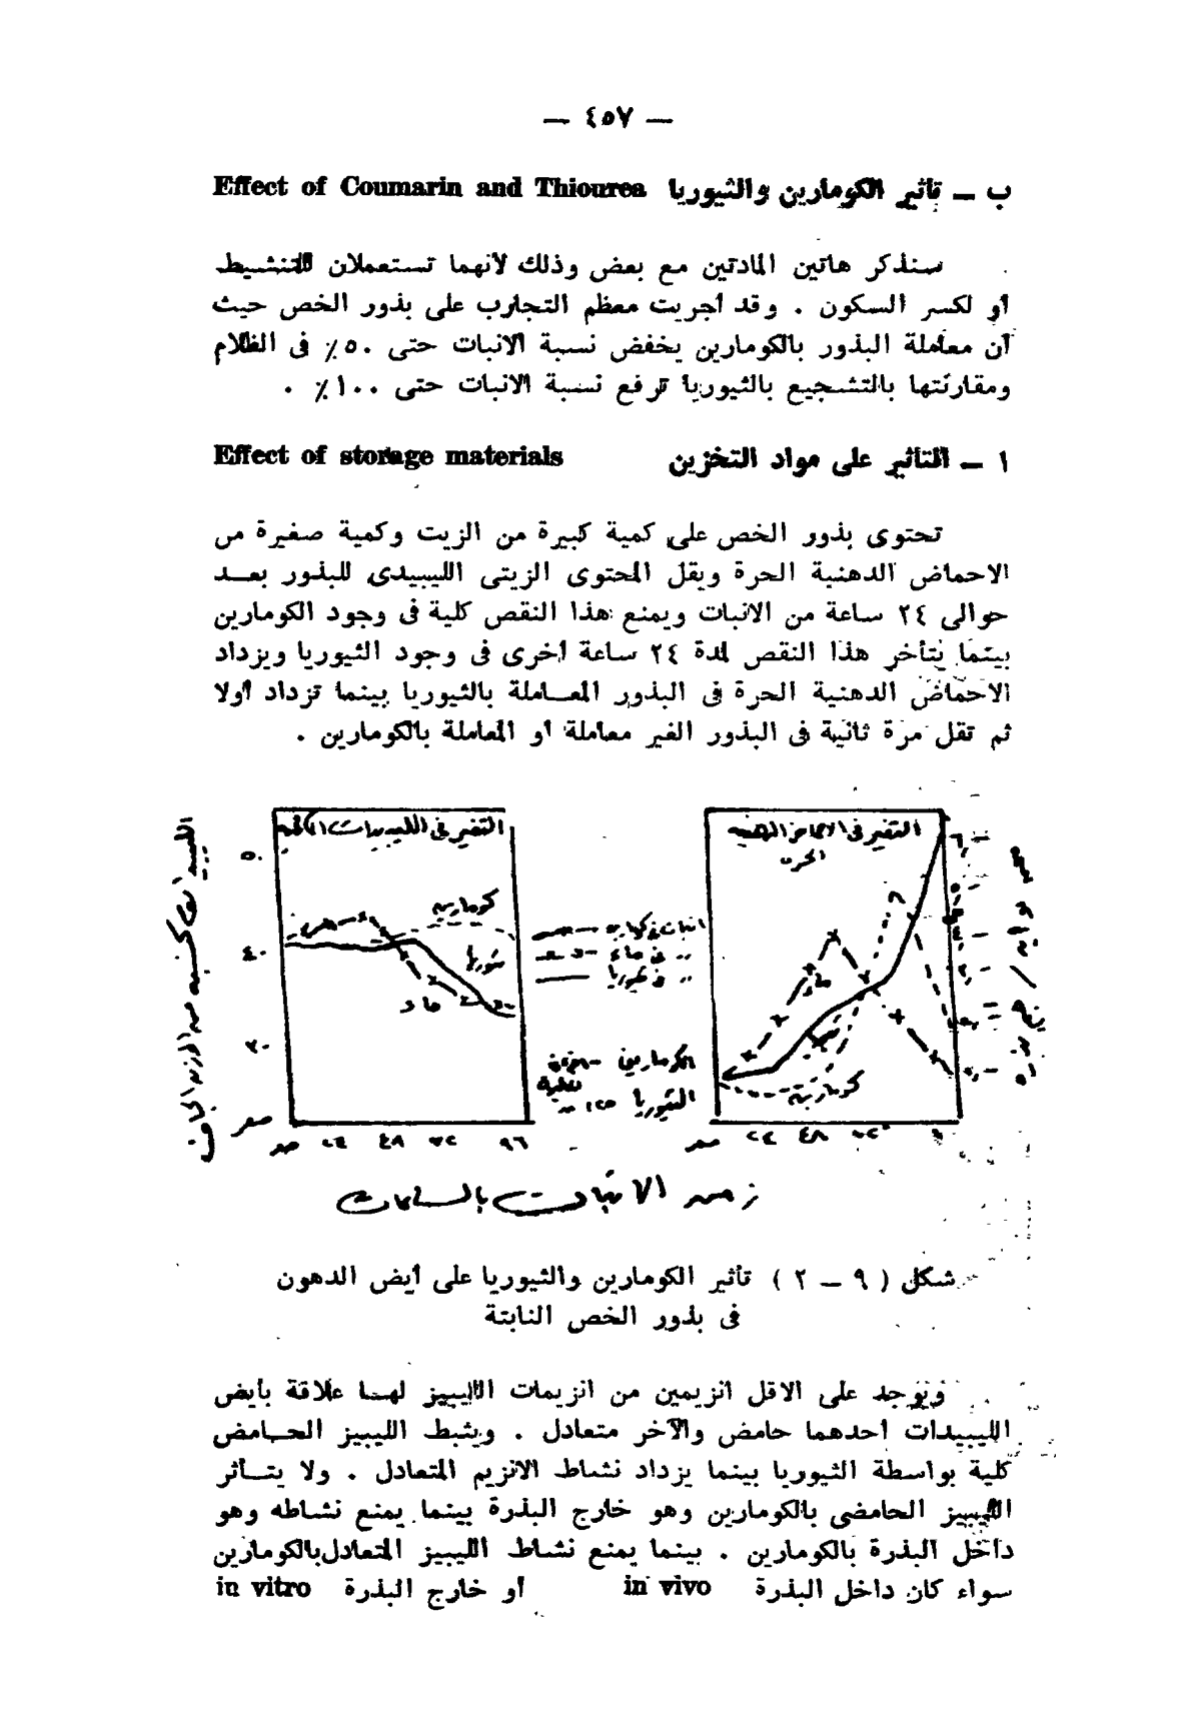 — ٤٥٧ —
ب — تأثير الكومارين والثيوريا Effect of Coumarin and Thiourea
سنذكر هاتين المادتين مع بعض وذلك لانهما تستعملان للتنشيط
أو لكسر السكون . وقد أجريت معظم التجارب على بذور الخص حيث
أن معاملة البذور بالكومارين يخفض نسبة الانبات حتى ٥٠٪ فى الظلام
ومقارنتها بالتشجيع بالثيوريا ترفع نسبة الانبات حتى ١٠٠٪ .
١ — التأثير على مواد التخزين Effect of storage materials
تحتوى بذور الخص على كمية كبيرة من الزيت وكمية صغيرة من
الاحماض الدهنية الحرة ويقل المحتوى الزيتى الليبيدى للبذور بعد
حوالى ٢٤ ساعة من الانبات ويمنع هذا النقص كلية فى وجود الكومارين
بينما يتأخر هذا النقص لمدة ٢٤ ساعة أخرى فى وجود الثيوريا ويزداد
الاحماض الدهنية الحرة فى البذور المعاملة بالثيوريا بينما تزداد أولا
ثم تقل مرة ثانية فى البذور الغير معاملة أو المعاملة بالكومارين .
التغير فى الليبيدات الكلية
٥٠
٤٠
٣٠
صفر
كومارين
ثيوريا
ماء
صفر ٢٤ ٤٨ ٧٢ ٩٦
انبات فى كومارين
,, فى ماء
,, فى ثيوريا
الكومارين
الثيوريا
التغير فى الاحماض الدهنية
الحرة
ماء
كومارين
صفر ٢٤ ٤٨ ٧٢
زمن الانبات بالساعات
شكل ( ٩ — ٢ ) تأثير الكومارين والثيوريا على أيض الدهون
فى بذور الخص النابتة
ويوجد على الاقل أنزيمين من انزيمات الليبيز لهما علاقة بأيض
الليبيدات أحدهما حامض والآخر متعادل . ويثبط الليبيز الحامض
كلية بواسطة الثيوريا بينما يزداد نشاط الانزيم المتعادل . ولا يتأثر
الليبيز الحامضى بالكومارين وهو خارج البذرة بينما يمنع نشاطه وهو
داخل البذرة بالكومارين . بينما يمنع نشاط الليبيز المتعادل بالكومارين
سواء كان داخل البذرة in vivo أو خارج البذرة in vitro